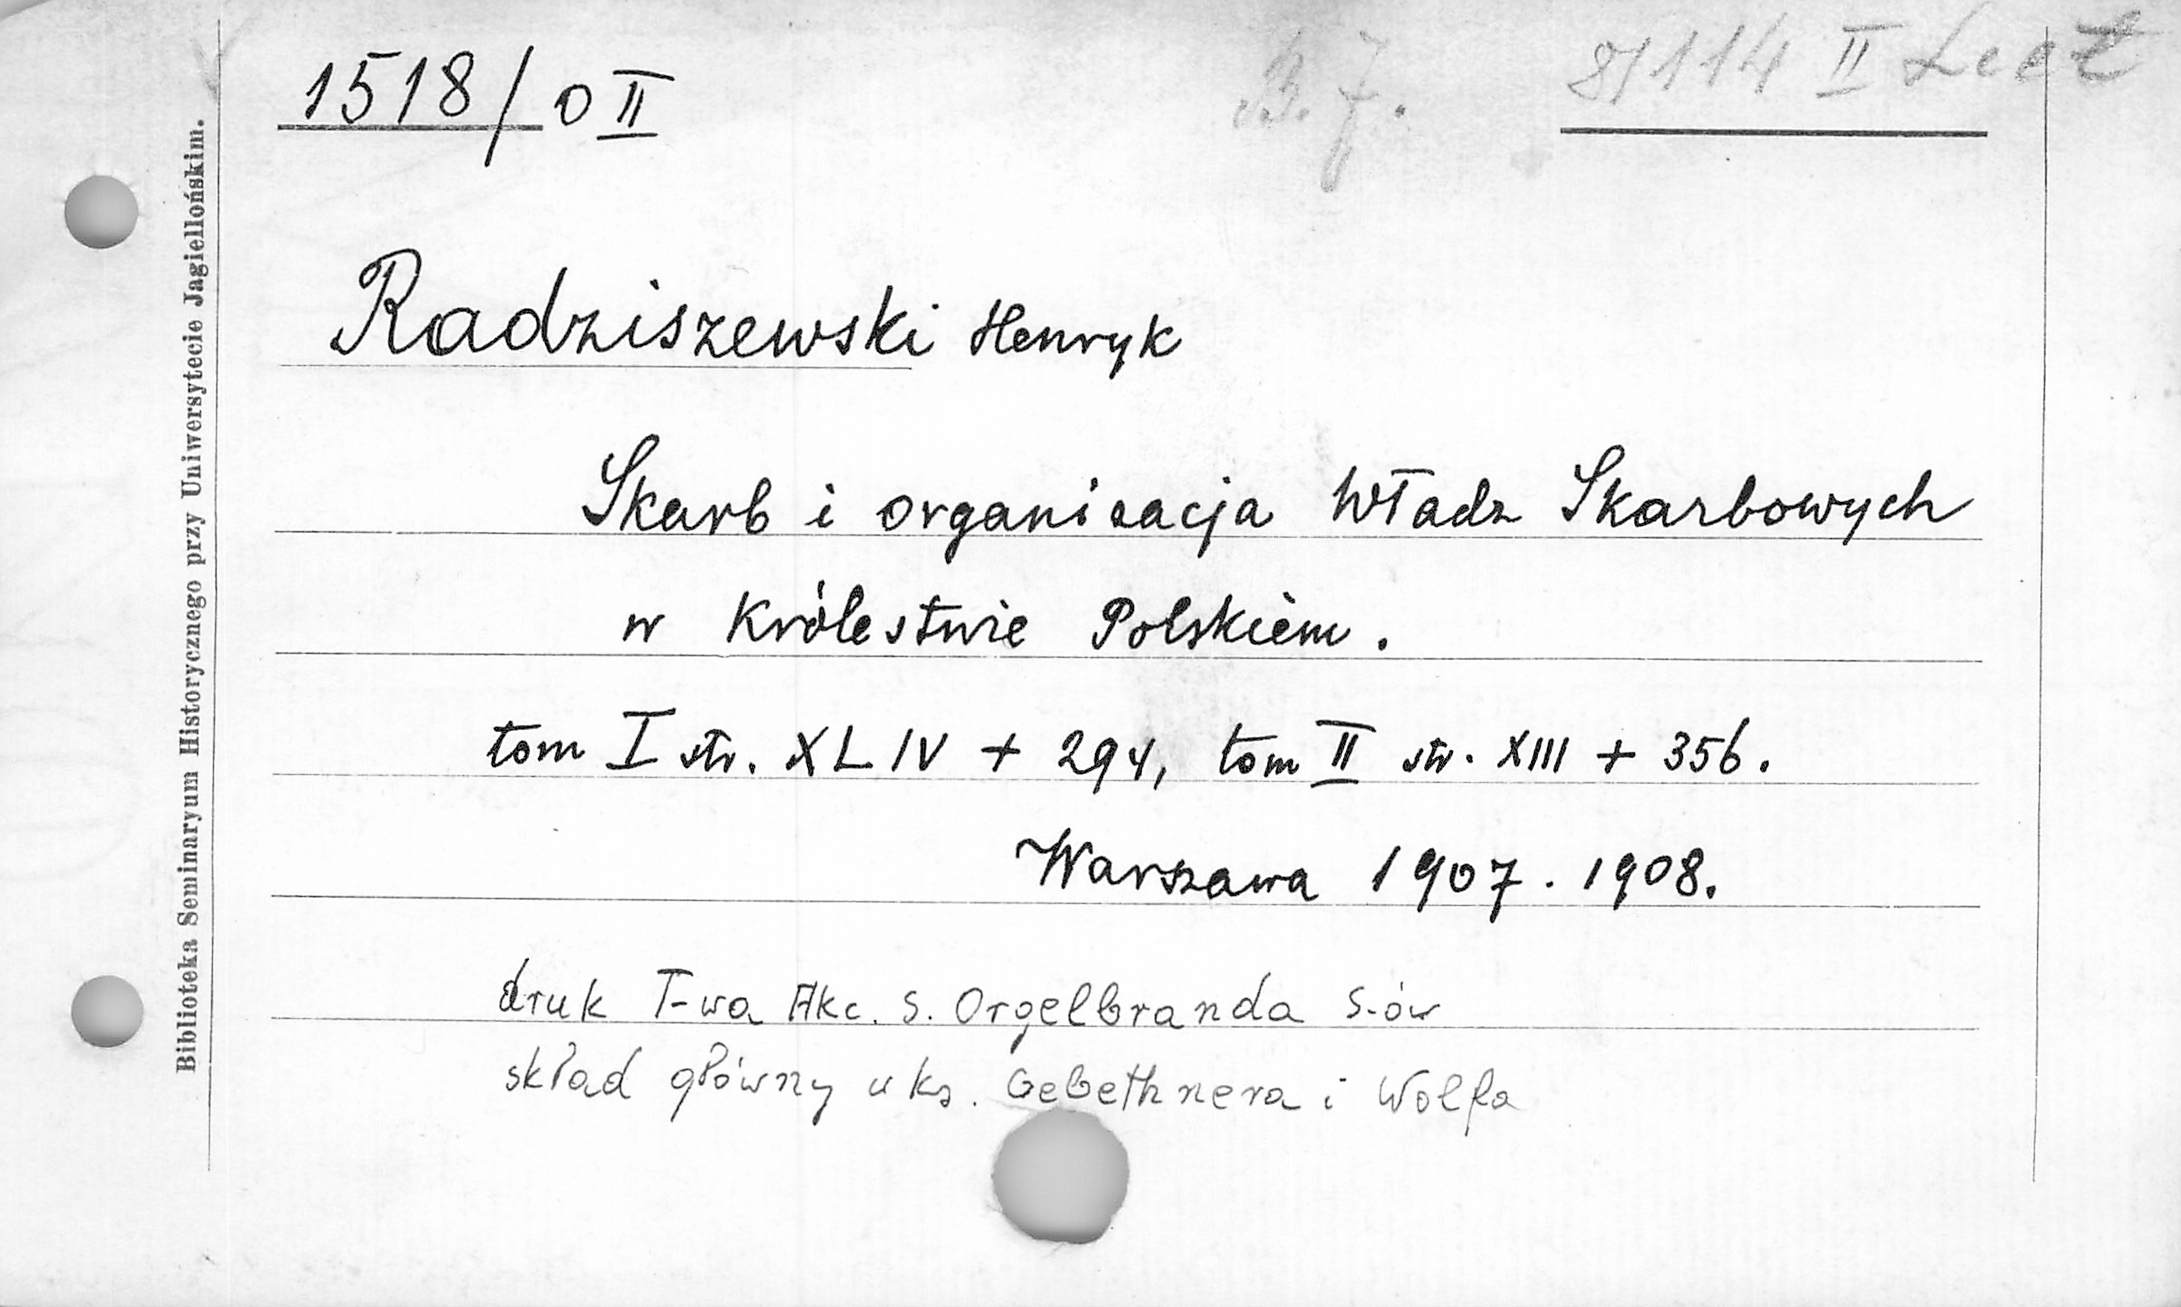 1518/0 II B. 7. 8/114 II
Radziszewski Henryk
Skarb i organizacja Władz Skarbowych
w Królestwie Polskièm.
tom I str. XLIV + 294, tom II str. XIII + 356.
Warszawa 1907. 1908.
druk T-wa Akc. S. Orgelbranda S-ów
skład główny u ks. Gebethnera i Wolfa
Biblioteka Seminaryum Historycznego przy Uniwersytecie Jagiellońskim.